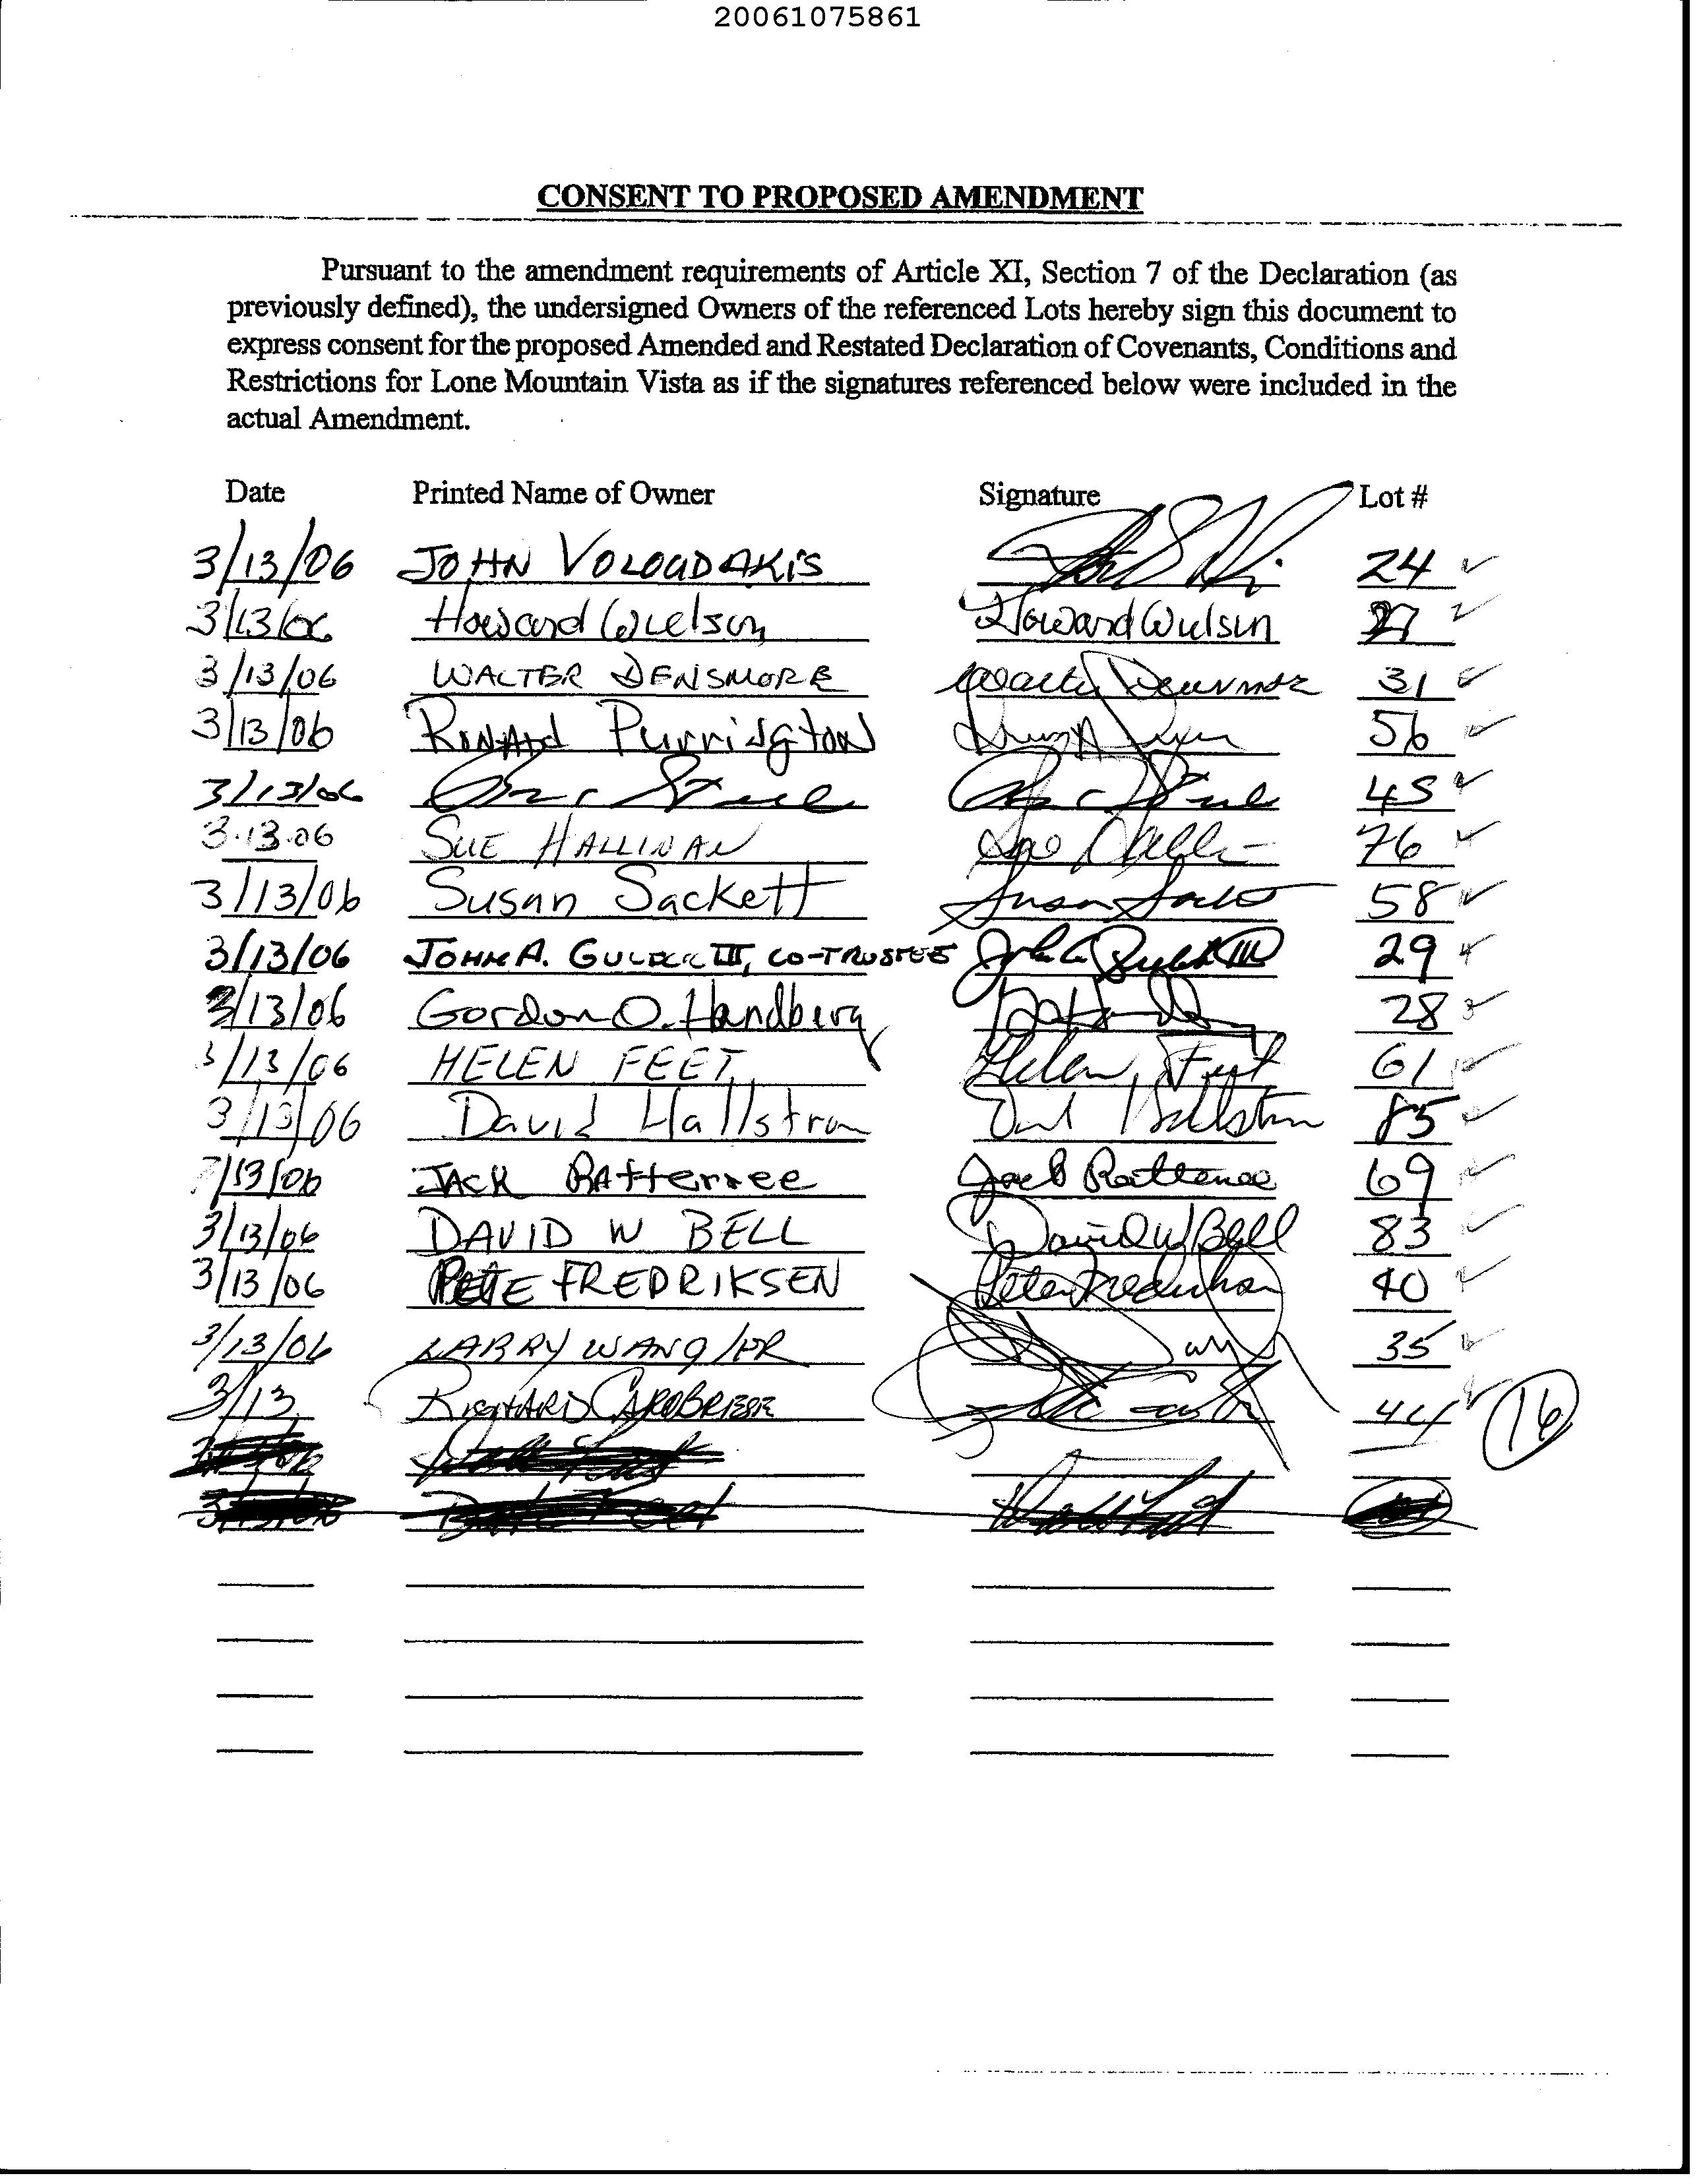 20061075861
CONSENT TO PROPOSED AMENDMENT
Pursuant to the amendment requirements of Article XI, Section 7 of the Declaration (as
previously defined), the undersigned Owners of the referenced Lots hereby sign this document to
express consent for the proposed Amended and Restated Declaration of Covenants, Conditions and
Restrictions for Lone Mountain Vista as if the signatures referenced below were included in the
actual Amendment.
Date Printed Name of Owner Signature Lot #
3/13/06 JOHN VOLOUDAKIS 24
3/13/06 Howard Wulsin Howard Wulsin 27
3/13/06 WALTER DENSMORE Walter Densmore 31
3/13/06 RONALD Purrington 56
3/13/06 45
3-13-06 SUE HALLINAN Sue 76
3/13/06 Susan Sackett Susan 58
3/13/06 JOHN A. III, CO-TRUSTEE John A III 29
3/13/06 Gordon O. Handberg 28
3/13/06 HELEN FEET Helen Feet 61
3/13/06 David Hallstrom 85
3/13/06 JACK RAtterree Jack Ratterree 69
3/13/06 DAVID W BELL David W Bell 83
3/13/06 PETE FREDRIKSEN Peter Fredriksen 40
3/13/06 LARRY WANG 35
3/13 RICHARD 44 16